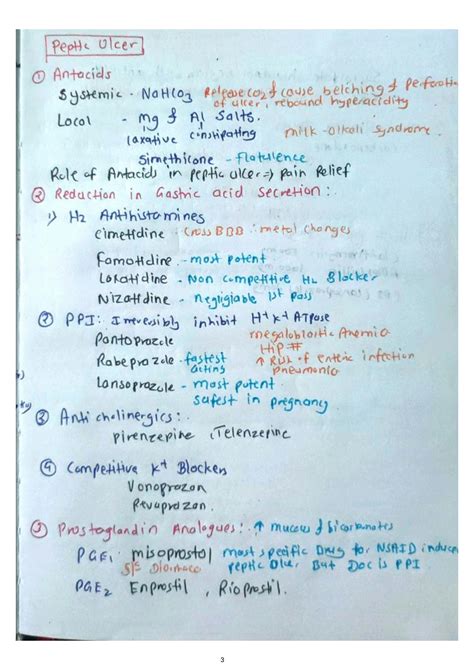 Peptic Ulcer
① Antacids
Systemic - NaHCO3 Release CO2 & cause belching & Perforation
of ulcer, rebound hyperacidity
Local - Mg & Al Salts.
laxative constipating milk-alkali syndrome.
Simethicone - flatulence
Role of Antacids in peptic ulcer => pain Relief
② Reduction in Gastric acid Secretion:
1) H2 Antihistamines
Cimetidine - Cross BBB : metal changes
Famotidine - most potent
Loxatidine - Non competitive H2 Blocker
Nizatidine - Negligiable 1st pass
② PPI: Irreversibly inhibit H+ K+ ATPase
Pantoprazole megaloblastic Anemia
Hip #
Rabeprazole - fastest acting ↑ Risk of enteric infection
pneumonia
Lansoprazole - most potent
safest in pregnancy
③ Anti cholinergics:
pirenzepine, Telenzepine
④ Competitive K+ Blockers
Vonoprazan
Revaprazan.
⑤ Prostaglandin Analogues: ↑ mucous & bicarbonates
PGE1 misoprostol most specific Drug for NSAID induced
S/E Diarrhoea peptic Ulcer But Doc is PPI
PGE2 Enprostil, Rioprostil.
3